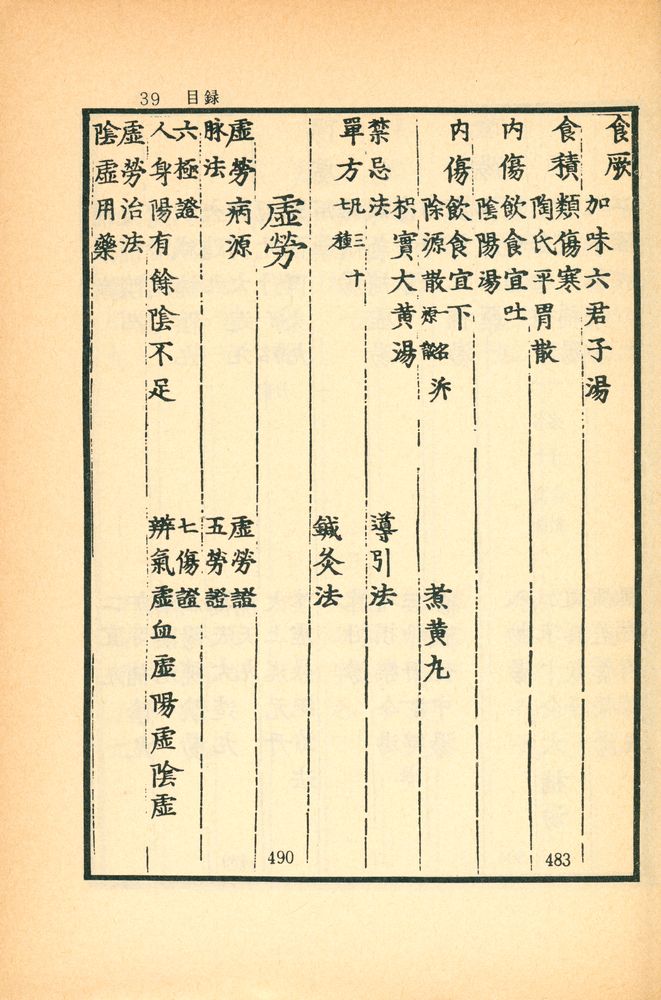 39 目録
食厥
加味六君子湯
食積類傷寒
陶氏平胃散
483
内傷飲食宜吐
陰陽湯
内傷飲食宜下
除源散一名泝源散 煮黃丸
枳實大黃湯
禁忌法 導引法
單方凡三十七種 鍼灸法
虛勞
490
虛勞病源 虛勞證
脉法 五勞證
六極證 七傷證
人身陽有餘陰不足 辨氣虛血虛陽虛陰虛
虛勞治法
陰虛用藥